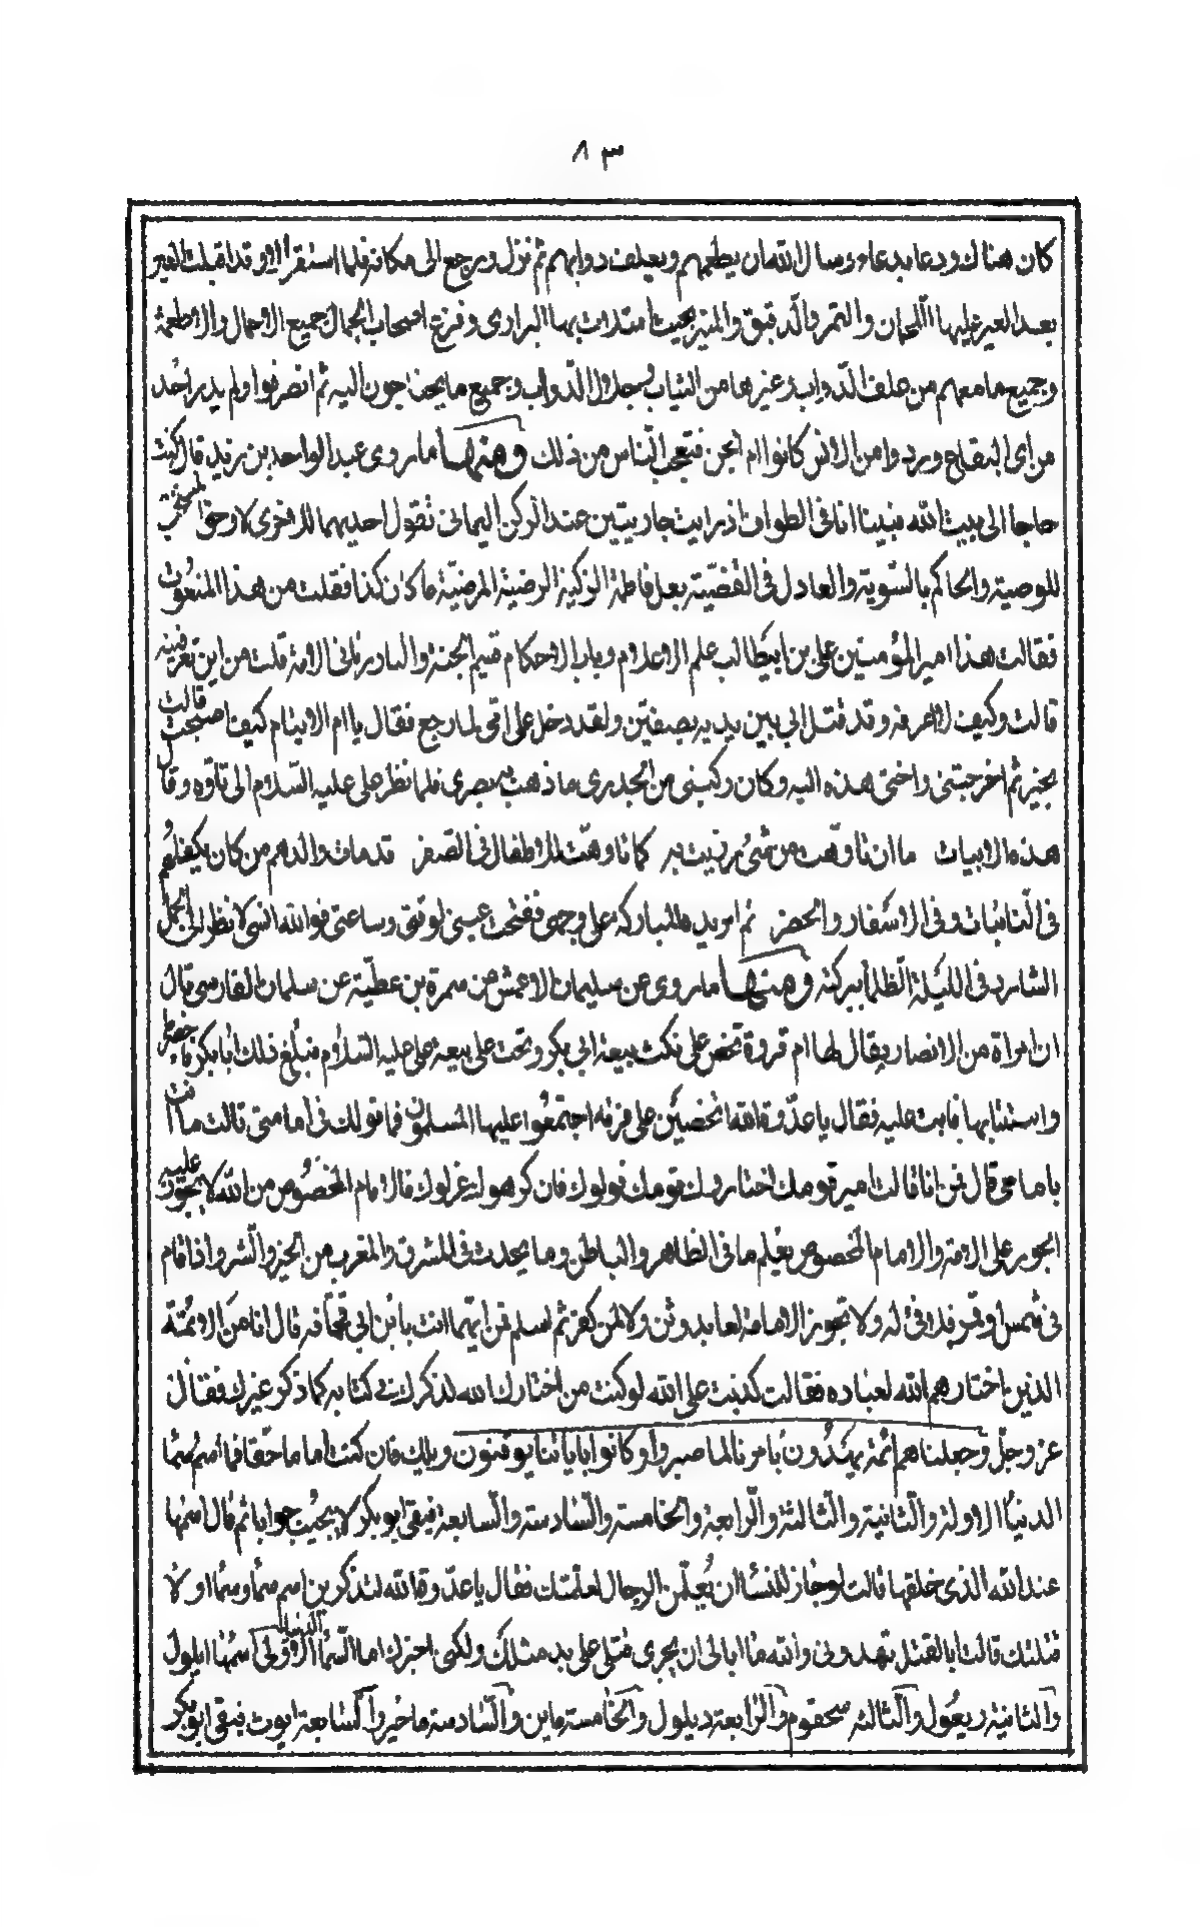 ٨٣
كان هناك ودعا بدعاء وسال الله ان يطعمهم ويعلف دوابهم ثم نزل ورجع الى مكانه فلما استقر الا وقد اقبلت العير
بعد العير عليها اللحمان والتمر والدقيق والمير بحيث امتدت بها البرارى وفرغ اصحاب الجمال جميع الاحمال والاطعمة
وجميع ما معهم من علف الدواب وغيرها من الثياب وجلال الدواب وجميع ما يحتاجون اليه ثم انصرفوا ولم يدر احد
من اى البقاع وردوا من الانس كانوا ام الجن فتعجب الناس من ذلك ومنها ما روى عبد الواحد بن زيد قال كنت
حاجا الى بيت الله فبينا انا فى الطواف اذ رايت جاريتين عند الركن اليمانى تقول احديهما للاخرى لا وحق المنتجب
للوصية والحاكم بالسوية والعادل فى القضية بعل فاطمة الزكية الرضية المرضية ما كان كذا فقلت من هذا المنعوت
فقالت هذا امير المؤمنين على بن ابيطالب علم الاعلام وباب الاحكام قسيم الجنة والنار ربانى الامة قلت من اين تعرفينه
قالت وكيف لا اعرفه وقد قتل ابى بين يديه بصفين ولقد دخل على امى لما رجع فقال يا ام الايتام كيف اصبحت قالت
بخير ثم اخرجتنى واختى هذه اليه وكان ركبنى من الجدرى ما ذهب به بصرى فلما نظر على عليه السلام الى تاوه وقال
هذه الابيات ما ان تاوهت من شئ رزيت به كما تاوهت للاطفال فى الصغر قد مات والدهم من كان يكفلهم
فى النائبات وفى الاسفار والحضر ثم امر يده المباركة على وجهى ففتحت عينى لوقتى وساعتى فوالله انى لانظر الى الجمل
الشارد فى الليلة الظلماء ببركته ومنها ما روى عن سليمان الاعمش عن سمرة بن عطية عن سلمان الفارسى قال
ان امراة من الانصار يقال لها ام فروة تحض على نكث بيعة ابى بكر وتحث على بيعة على عليه السلام فبلغ ذلك ابا بكر فاحضرها
واستتابها فابت عليه فقال يا عدوة الله اتحضين على فرقة اجتمعوا عليها المسلمون فما قولك فى امامتى قالت ما انت
بامامى قال فمن انا قالت امير قومك اختاروك قومك فولوك فان كرهوك عزلوك فالامام المخصوص من الله لا يجوز عليه
الجور على الامة والامام المخصوص يعلم ما فى الظاهر والباطن وما يحدث فى المشرق والمغرب من الخير والشر واذا قام
فى شمس او قمر فلا فئ له ولا تجوز الامامة لعابد وثن ولا لمن كفر ثم اسلم فمن ايهما انت يا بن ابى قحافه قال انا من الائمة
الذين اختارهم الله لعباده فقالت كذبت على الله لو كنت من اختارك الله لذكرك فى كتابه كما ذكر غيرك فقال
عز وجل وجعلنا هم ائمة يهدون بامرنا لما صبروا وكانوا باياتنا يوقنون ويلك فان كنت اماما حقا فما اسم سماء
الدنيا الاولة والثانية والثالثة والرابعة والخامسة والسادسة والسابعة فبقى ابو بكر لا يجيب جوابا ثم قال اسمها
عند الله الذى خلقها قالت لو جاز للنساء ان يعلمن الرجال لعلمتك فقال يا عدوة الله لتذكرين اسم سماء وسماء او لا
قتلتك قالت ابالقتل تهددنى والله ما ابالى ان يجرى قتلى على يد مثلك ولكنى اخبرك اما السماء الدنيا الاولى اسمها ايلول
والثانية ربعول والثالثه سحقوم والرابعة ديلول والخامسة ماين والسادسة ماخير والسابعة ايوث فبقى ابو بكر